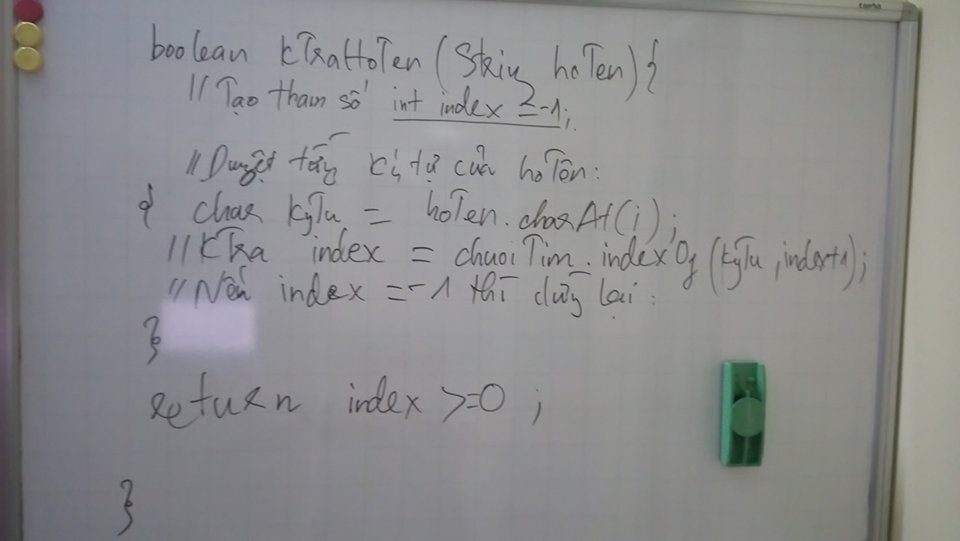 boolean kTraHoTen (String hoTen) {
// Tạo tham số int index = -1;
// Duyệt từng ký tự của hoTên:
{ char kyTu = hoTen.charAt(i);
// KTra index = chuoiTim.indexOf (kyTu, index+1);
// Nếu index = -1 thì dừng lại:
}
return index >= 0 ;
}